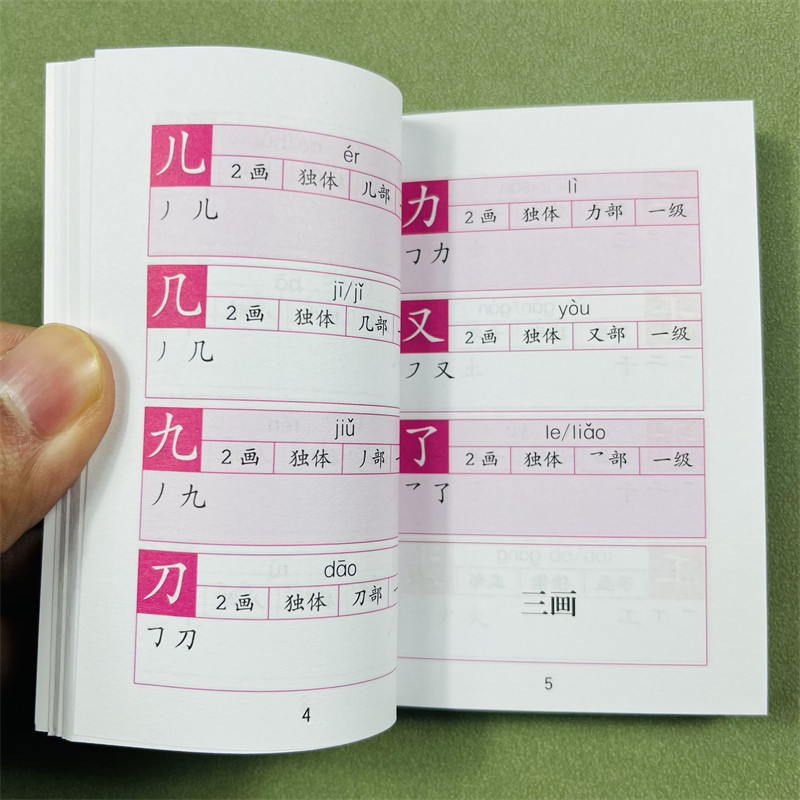 儿 ér
2画 独体 儿部
丿 儿
几 jī/jǐ
2画 独体 几部
丿 几
九 jiǔ
2画 独体 丿部
丿 九
刀 dāo
2画 独体 刀部
𠃌 刀
4
力 lì
2画 独体 力部 一级
𠃌 力
又 yòu
2画 独体 又部 一级
㇇ 又
了 le/liǎo
2画 独体 乛部 一级
乛 了
三画
5